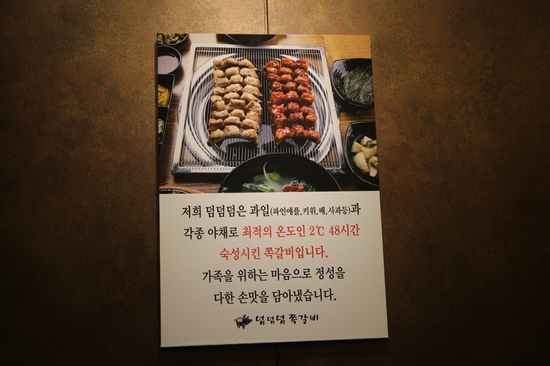 저희 덤덤덤은 과일(파인애플,키위,배,사과등)과
각종 야채로 최적의 온도인 2℃ 48시간
숙성시킨 쪽갈비입니다.
가족을 위하는 마음으로 정성을
다한 손맛을 담아냈습니다.
덤덤덤 쪽갈비